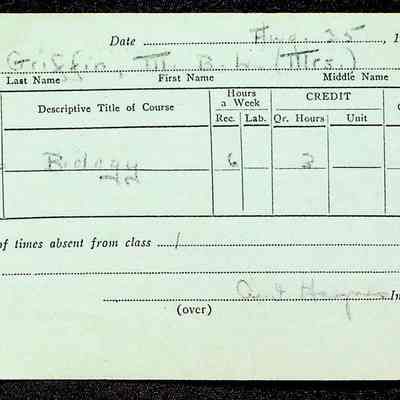 Date Aug. 25, 1
Griffin, M. B. L. (Mrs.)
Last Name First Name Middle Name
Descriptive Title of Course Hours a Week CREDIT
Rec. Lab. Qr. Hours Unit
Biology 6 3
of times absent from class /
In
(over)